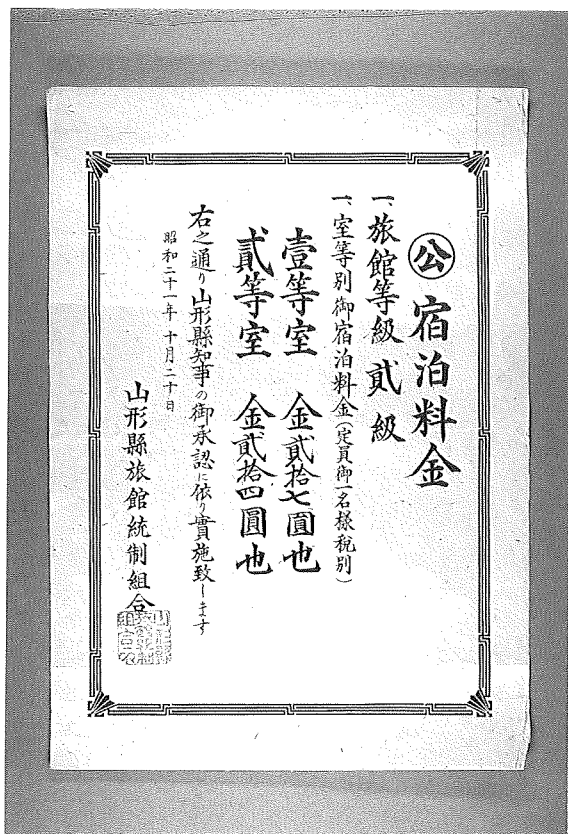 ㊂公 宿泊料金
一、旅館等級 貳級
一、室等別御宿泊料金(定員御一名様税別)
壹等室 金貳拾七圓也
貳等室 金貳拾四圓也
右之通り山形縣知事の御承認に依り實施致します
昭和二十一年 十月二十日
山形縣旅館統制組合